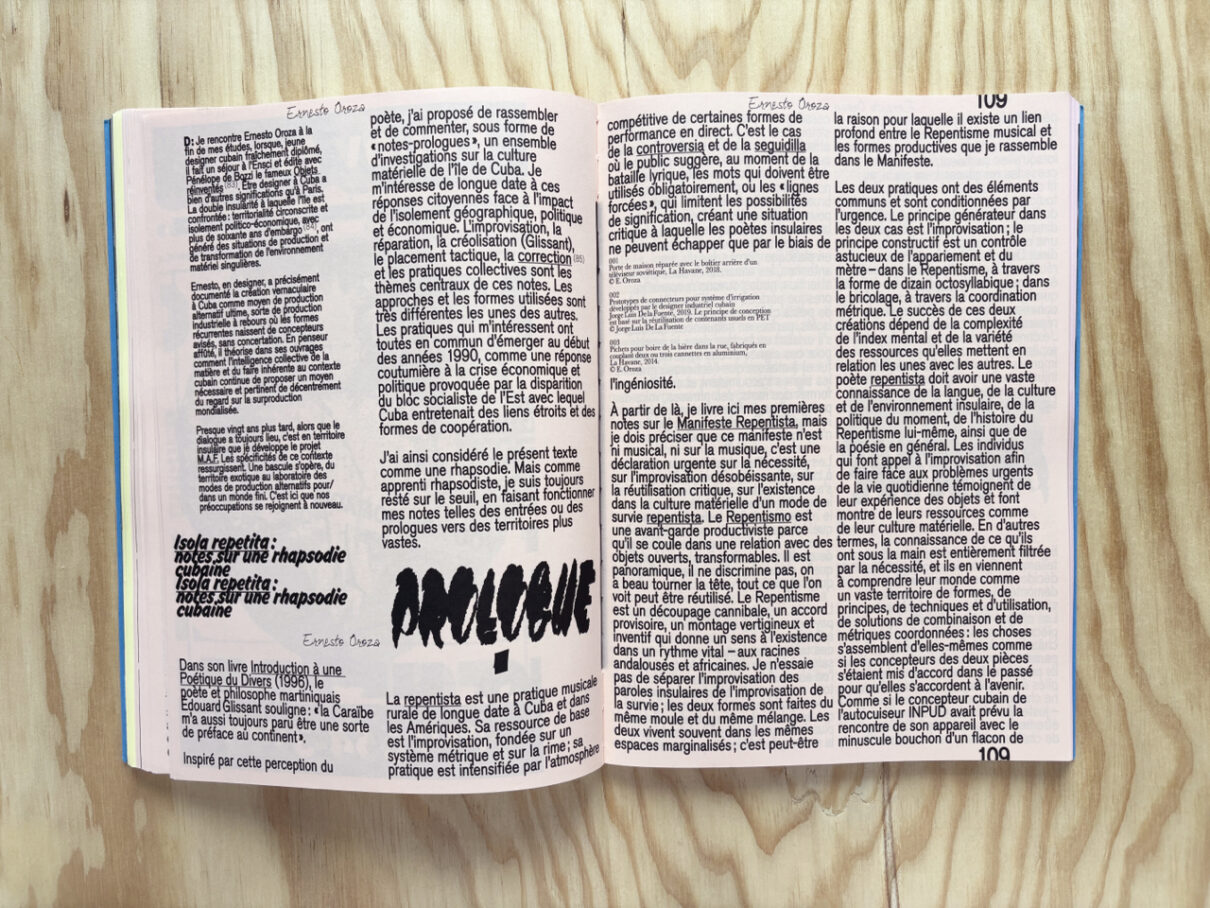 Ernesto Oroza
D: Je rencontre Ernesto Oroza à la
fin de mes études, lorsque, jeune
designer cubain fraîchement diplômé,
il fait un séjour à l'Ensci et édite avec
Pénélope de Bozzi le fameux Objets
réinventés (83). Être designer à Cuba a
bien d'autres significations qu'à Paris.
La double insularité à laquelle l'île est
confrontée : territorialité circonscrite et
isolement politico-économique, avec
plus de soixante ans d'embargo (84), ont
généré des situations de production et
de transformation de l'environnement
matériel singulières.
Ernesto, en designer, a précisément
documenté la création vernaculaire
à Cuba comme moyen de production
alternatif ultime, sorte de production
industrielle à rebours où les formes
récurrentes naissent de concepteurs
avisés, sans concertation. En penseur
affûté, il théorise dans ses ouvrages
comment l'intelligence collective de la
matière et du faire inhérente au contexte
cubain continue de proposer un moyen
nécessaire et pertinent de décentrement
du regard sur la surproduction
mondialisée.
Presque vingt ans plus tard, alors que le
dialogue a toujours lieu, c'est en territoire
insulaire que je développe le projet
M.A.F. Les spécificités de ce contexte
ressurgissent. Une bascule s'opère, du
territoire exotique au laboratoire des
modes de production alternatifs pour/
dans un monde fini. C'est ici que nos
préoccupations se rejoignent à nouveau.
Isola repetita :
notes sur une rhapsodie
cubaine
Isola repetita :
notes sur une rhapsodie
cubaine
Ernesto Oroza
Dans son livre Introduction à une
Poétique du Divers (1996), le
poète et philosophe martiniquais
Edouard Glissant souligne : « la Caraïbe
m'a aussi toujours paru être une sorte
de préface au continent ».
Inspiré par cette perception du
poète, j'ai proposé de rassembler
et de commenter, sous forme de
« notes-prologues », un ensemble
d'investigations sur la culture
matérielle de l'île de Cuba. Je
m'intéresse de longue date à ces
réponses citoyennes face à l'impact
de l'isolement géographique, politique
et économique. L'improvisation, la
réparation, la créolisation (Glissant),
le placement tactique, la correction (85)
et les pratiques collectives sont les
thèmes centraux de ces notes. Les
approches et les formes utilisées sont
très différentes les unes des autres.
Les pratiques qui m'intéressent ont
toutes en commun d'émerger au début
des années 1990, comme une réponse
coutumière à la crise économique et
politique provoquée par la disparition
du bloc socialiste de l'Est avec lequel
Cuba entretenait des liens étroits et des
formes de coopération.
J'ai ainsi considéré le présent texte
comme une rhapsodie. Mais comme
apprenti rhapsodiste, je suis toujours
resté sur le seuil, en faisant fonctionner
mes notes telles des entrées ou des
prologues vers des territoires plus
vastes.
PROLOGUE
La repentista est une pratique musicale
rurale de longue date à Cuba et dans
les Amériques. Sa ressource de base
est l'improvisation, fondée sur un
système métrique et sur la rime ; sa
pratique est intensifiée par l'atmosphère
Ernesto Oroza
compétitive de certaines formes de
performance en direct. C'est le cas
de la controversia et de la seguidilla
où le public suggère, au moment de la
bataille lyrique, les mots qui doivent être
utilisés obligatoirement, ou les « lignes
forcées », qui limitent les possibilités
de signification, créant une situation
critique à laquelle les poètes insulaires
ne peuvent échapper que par le biais de
001
Porte de maison réparée avec le boîtier arrière d'un
téléviseur soviétique, La Havane, 2018.
© E. Oroza
002
Prototypes de connecteurs pour système d'irrigation
développés par le designer industriel cubain
Jorge Luis De la Fuente, 2019. Le principe de conception
est basé sur la réutilisation de contenants usuels en PET
© Jorge Luis De La Fuente
003
Pichets pour boire de la bière dans la rue, fabriqués en
couplant deux ou trois cannettes en aluminium,
La Havane, 2014.
© E. Oroza
l'ingéniosité.
À partir de là, je livre ici mes premières
notes sur le Manifeste Repentista, mais
je dois préciser que ce manifeste n'est
ni musical, ni sur la musique, c'est une
déclaration urgente sur la nécessité,
sur l'improvisation désobéissante, sur
la réutilisation critique, sur l'existence
dans la culture matérielle d'un mode de
survie repentista. Le Repentismo est
une avant-garde productiviste parce
qu'il se coule dans une relation avec des
objets ouverts, transformables. Il est
panoramique, il ne discrimine pas, on
a beau tourner la tête, tout ce que l'on
voit peut être réutilisé. Le Repentisme
est un découpage cannibale, un accord
provisoire, un montage vertigineux et
inventif qui donne un sens à l'existence
dans un rythme vital – aux racines
andalouses et africaines. Je n'essaie
pas de séparer l'improvisation des
paroles insulaires de l'improvisation de
la survie ; les deux formes sont faites du
même moule et du même mélange. Les
deux vivent souvent dans les mêmes
espaces marginalisés ; c'est peut-être
109
la raison pour laquelle il existe un lien
profond entre le Repentisme musical et
les formes productives que je rassemble
dans le Manifeste.
Les deux pratiques ont des éléments
communs et sont conditionnées par
l'urgence. Le principe générateur dans
les deux cas est l'improvisation ; le
principe constructif est un contrôle
astucieux de l'appariement et du
mètre – dans le Repentisme, à travers
la forme de dizain octosyllabique ; dans
le bricolage, à travers la coordination
métrique. Le succès de ces deux
créations dépend de la complexité
de l'index mental et de la variété
des ressources qu'elles mettent en
relation les unes avec les autres. Le
poète repentista doit avoir une vaste
connaissance de la langue, de la culture
et de l'environnement insulaire, de la
politique du moment, de l'histoire du
Repentisme lui-même, ainsi que de
la poésie en général. Les individus
qui font appel à l'improvisation afin
de faire face aux problèmes urgents
de la vie quotidienne témoignent de
leur expérience des objets et font
montre de leurs ressources comme
de leur culture matérielle. En d'autres
termes, la connaissance de ce qu'ils
ont sous la main est entièrement filtrée
par la nécessité, et ils en viennent
à comprendre leur monde comme
un vaste territoire de formes, de
principes, de techniques et d'utilisation,
de solutions de combinaison et de
métriques coordonnées : les choses
s'assemblent d'elles-mêmes comme
si les concepteurs des deux pièces
s'étaient mis d'accord dans le passé
pour qu'elles s'accordent à l'avenir.
Comme si le concepteur cubain de
l'autocuiseur INPUD avait prévu la
rencontre de son appareil avec le
minuscule bouchon d'un flacon de
109